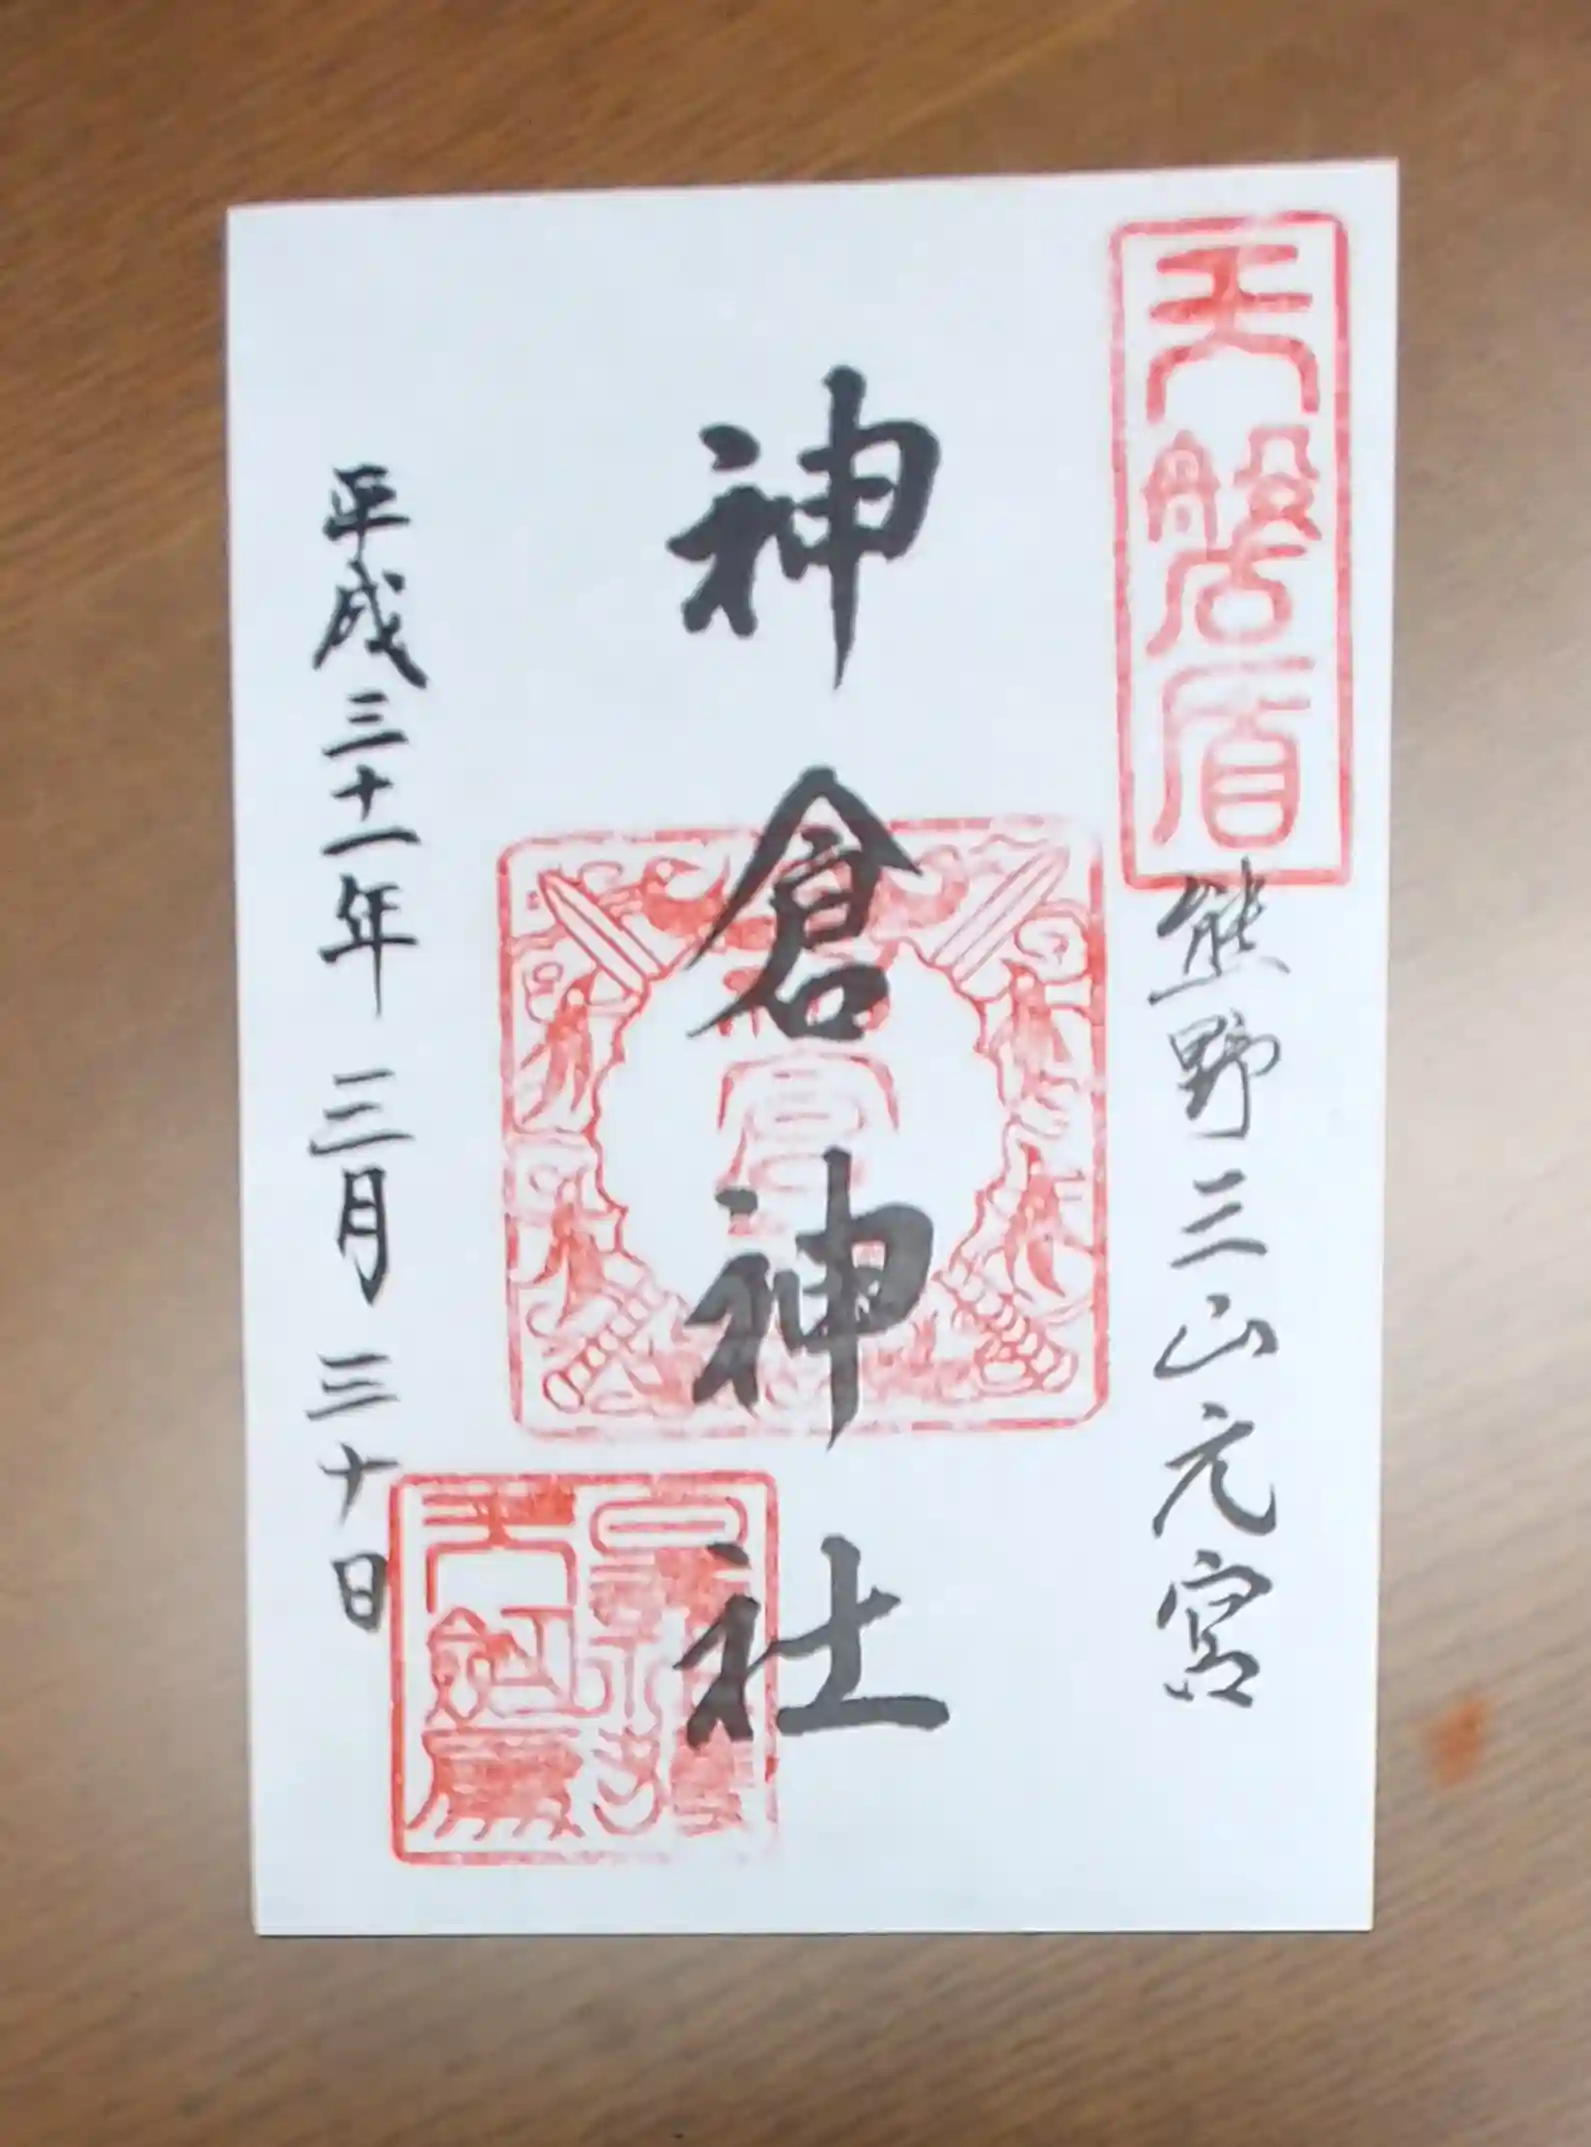 天磐盾
熊野三山元宮
神倉神社
平成三十一年 三月 三十日